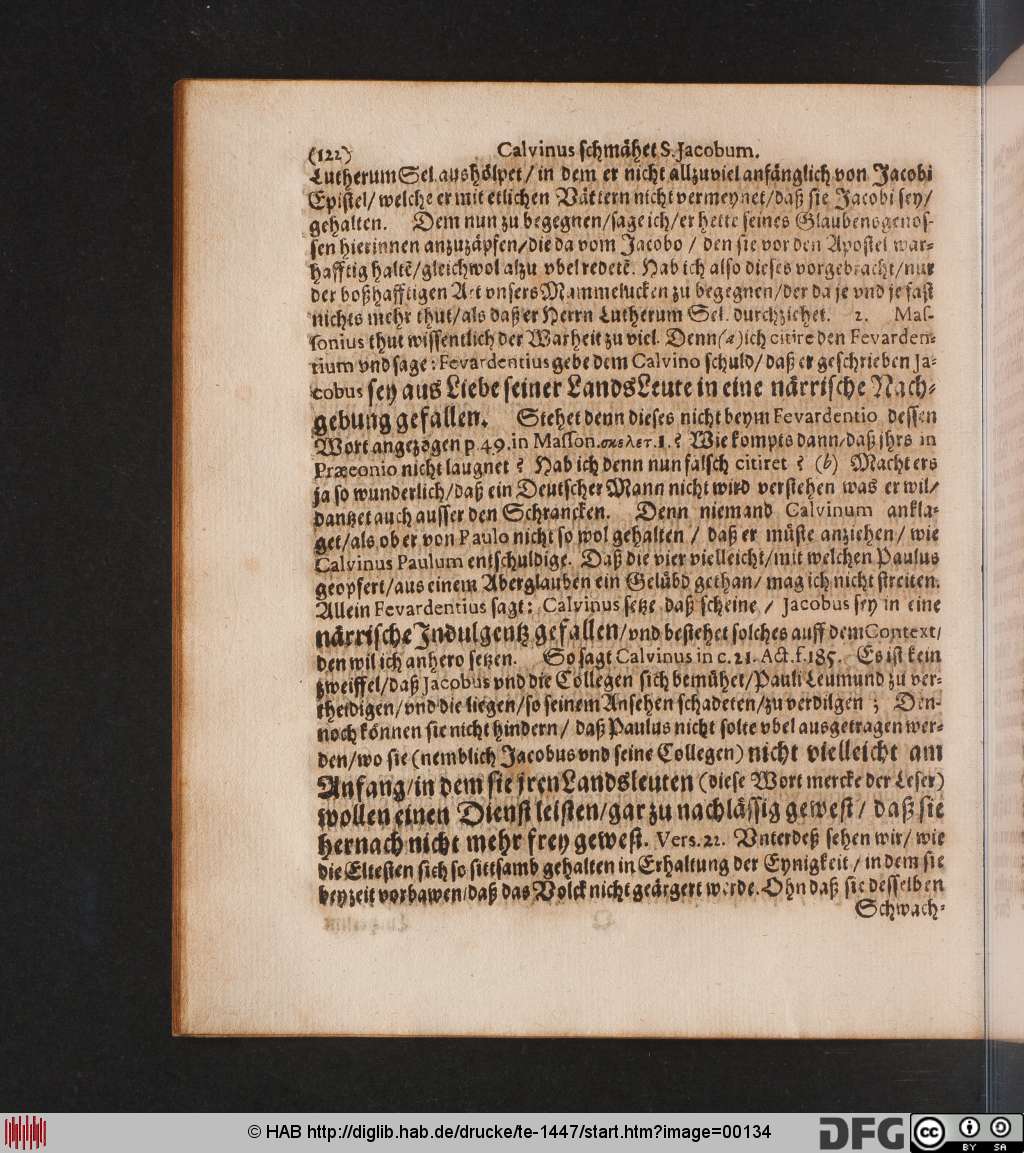 (122) Calvinus schmähet S. Jacobum.
Lutherum Sel. aushölpet / in dem er nicht allzuviel anfänglich von Jacobi
Epistel / welche er mit etlichen Vättern nicht vermeynet / daß sie Jacobi sey /
gehalten. Dem nun zu begegnen / sage ich / er hette seines Glaubensgenos-
sen hierinnen anzuzäpfen / die da vom Jacobo / den sie vor den Apostel war-
hafftig haltẽ / gleichwol alzu vbel redetẽ. Hab ich also dieses vorgebracht / nur
der boßhafftigen Art vnsers Mammelucken zu begegnen / der da je vnd je fast
nichts mehr thut / als daß er Herrn Lutherum Sel. durchziehet. 2. Mas-
sonius thut wissentlich der Warheit zu viel. Denn (a) ich citire den Fevarden-
tium vnd sage : Fevardentius gebe dem Calvino schuld / daß er geschrieben Ja-
cobus sey aus Liebe seiner LandsLeute in eine närrische Nach-
gebung gefallen. Stehet denn dieses nicht beym Fevardentio dessen
Wort angezogen p. 49. in Masson. σκελετ. 1. ? Wie kompts dann / daß jhrs in
Præconio nicht laugnet ? Hab ich denn nun falsch citiret ? (b) Macht ers
ja so wunderlich / daß ein Deutscher Mann nicht wird verstehen was er wil /
dantzet auch ausser den Schrancken. Denn niemand Calvinum ankla-
get / als ob er von Paulo nicht so wol gehalten / daß er müste anziehen / wie
Calvinus Paulum entschuldige. Daß die vier vielleicht / mit welchen Paulus
geopfert / aus einem Aberglauben ein Gelübd gethan / mag ich nicht streiten.
Allein Fevardentius sagt : Calvinus setze daß scheine / Jacobus sey in eine
närrische Indulgentz gefallen / vnd bestehet solches auff dem Context /
den wil ich anhero setzen. So sagt Calvinus in c. 21. Act. f. 185. Es ist kein
zweiffel / daß Jacobus vnd die Collegen sich bemühet / Pauli Leumund zu ver-
theidigen / vnd die liegen / so seinem Ansehen schadeten / zu verdilgen ; Den-
noch können sie nicht hindern / daß Paulus nicht solte vbel ausgetragen wer-
den / wo sie (nemblich Jacobus vnd seine Collegen) nicht vielleicht am
Anfang / in dem sie jren Landsleuten (diese Wort mercke der Leser)
wollen einen Dienst leisten / gar zu nachlässig gewest / daß sie
hernach nicht mehr frey gewest. Vers. 22. Vnterdeß sehen wir / wie
die Eltesten sich so sittsamb gehalten in Erhaltung der Eynigkeit / in dem sie
beyzeit vorbawen / daß das Volck nicht geärgert werde. Ohn daß sie desselben
Schwach-
© HAB http://diglib.hab.de/drucke/te-1447/start.htm?image=00134
DFG
cc BY SA